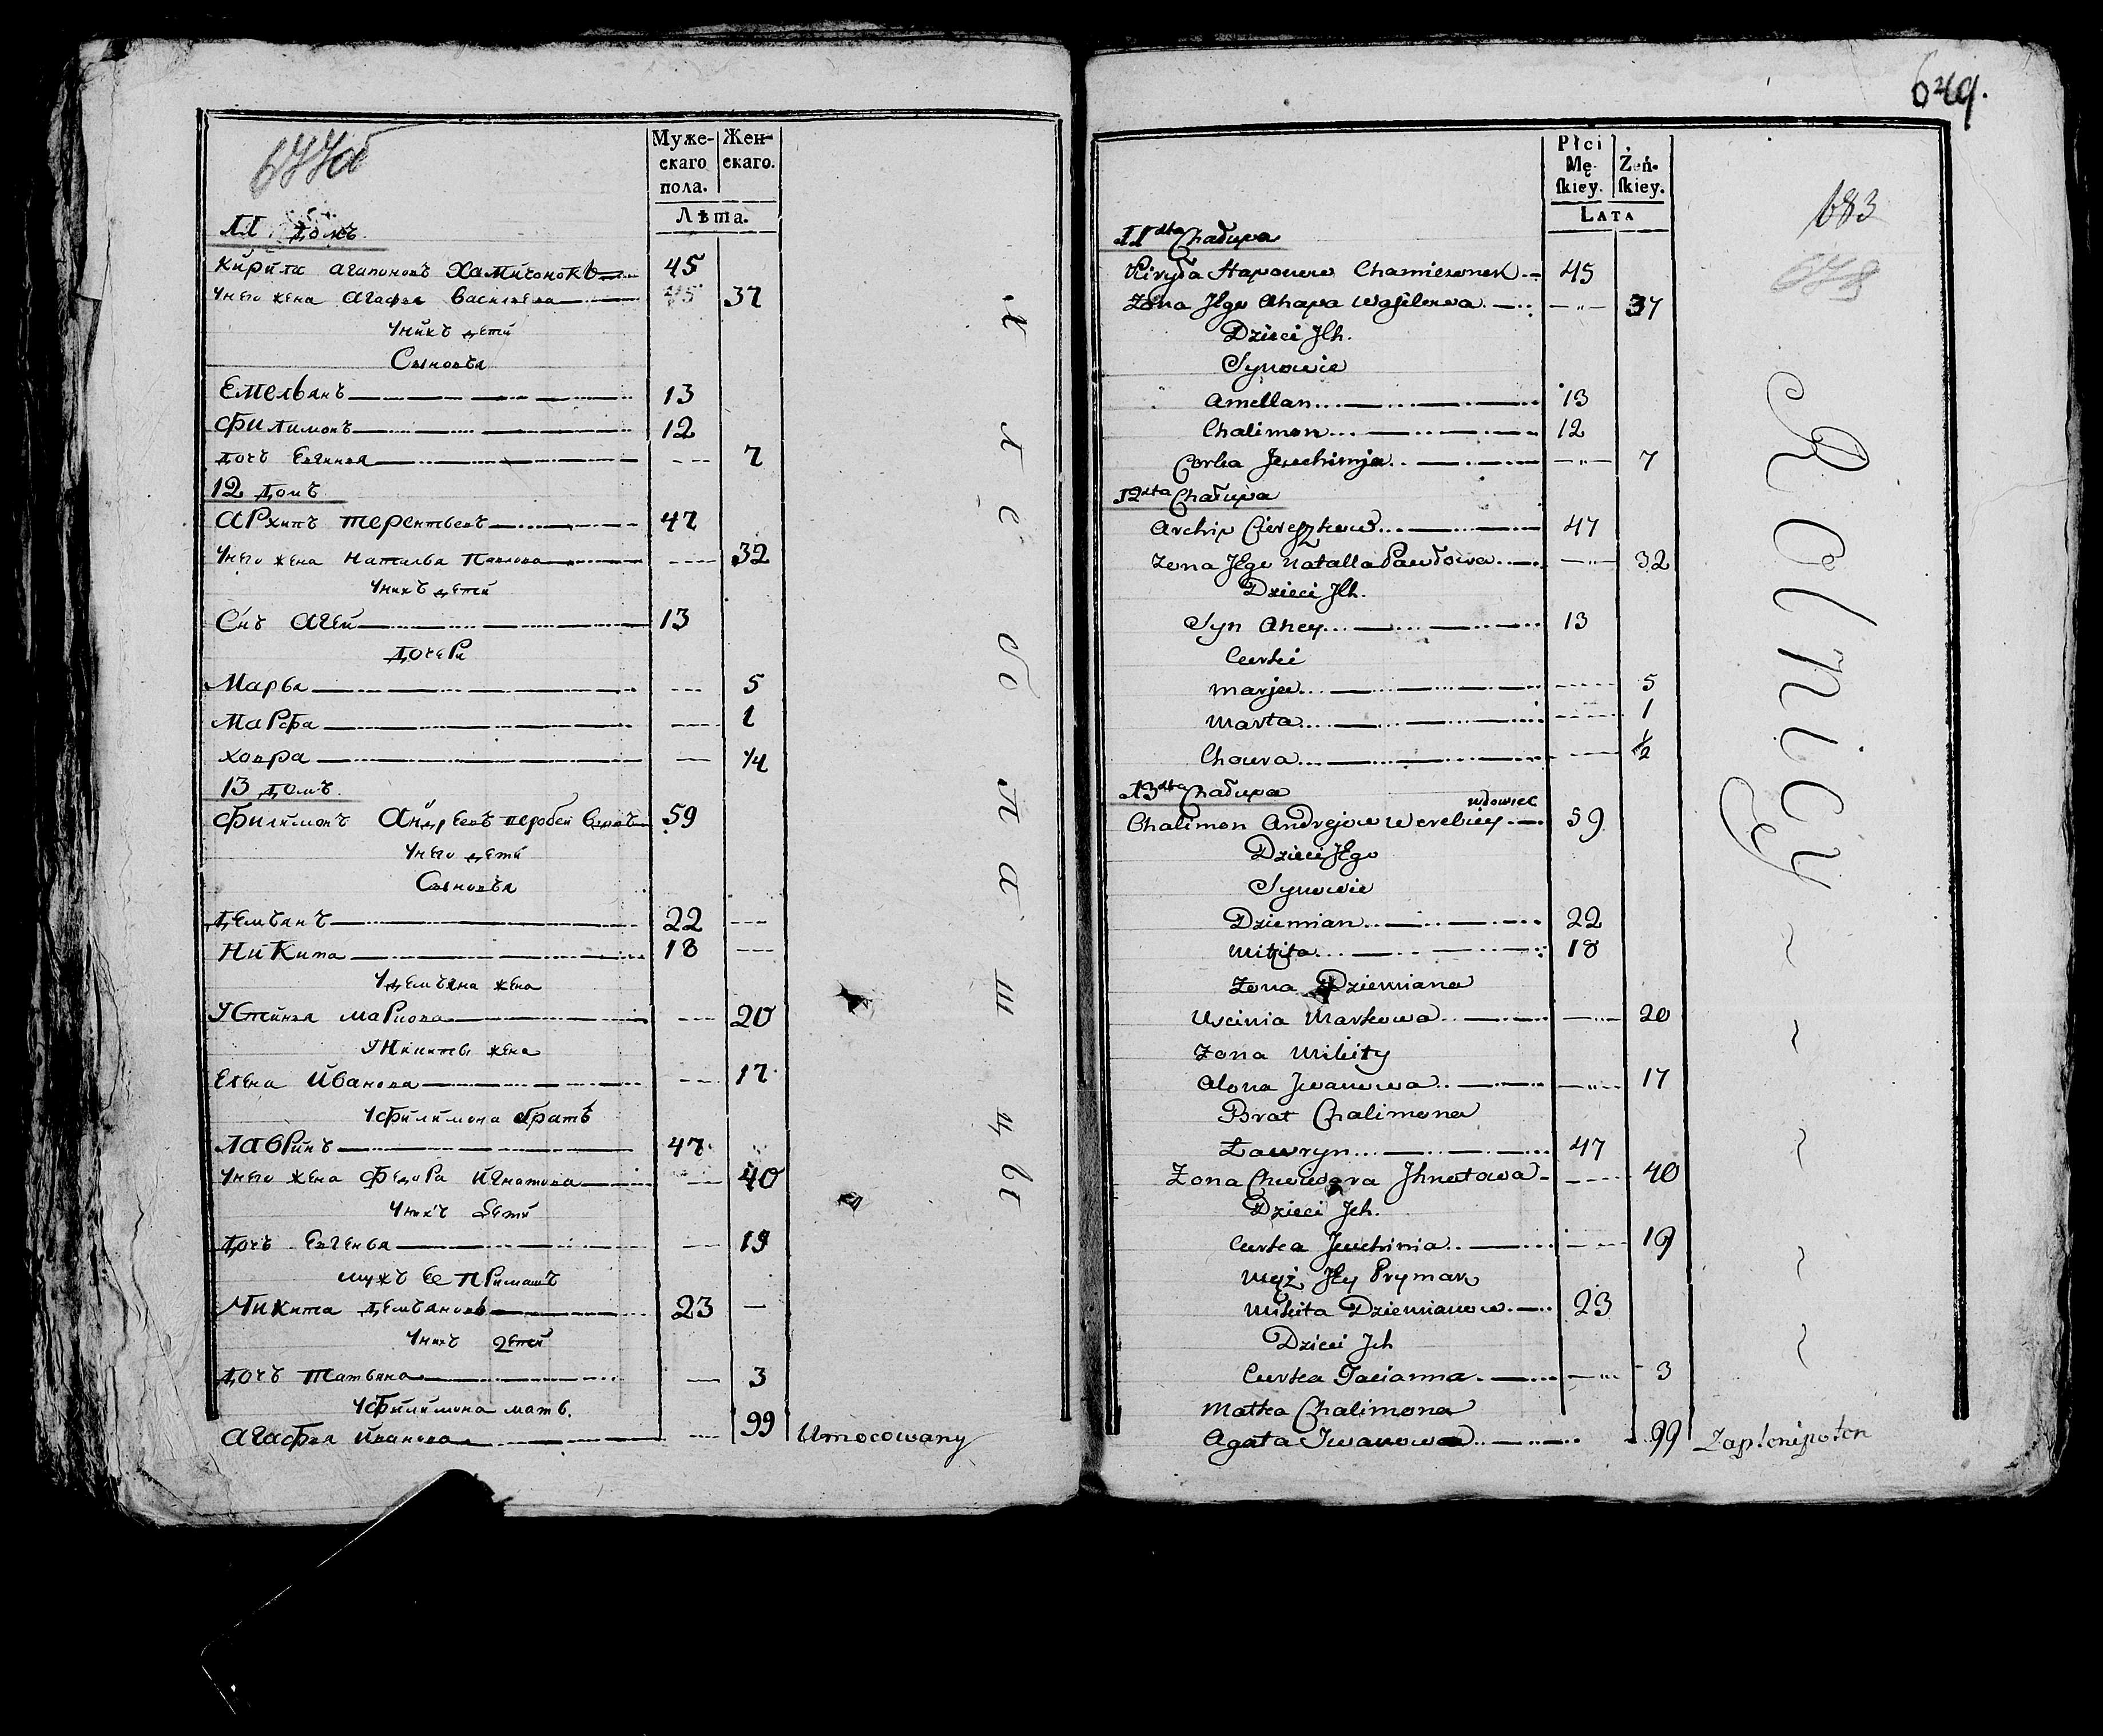 Муже-
скаго
пола.
Жен-
скаго.
Лѣта.
11 домъ
Кирила Агапоновъ Хамичонокъ 45
Унего жена Агафья Васильева 37
Унихъ дети
Сыновья
Емельянъ 13
Филимонъ 12
дочь Евгинья 7
12 домъ
Архипъ Терентьевъ 47
Унего жена Наталья Павлова 32
Унихъ дети
Снъ Агей 13
дочери
Марья 5
Марфа 1
Ховра 1/4
13 домъ.
Филимонъ Андреевъ 59
Унего дети
Сыновья
Демьянъ 22
Никита 18
У Демьяна жена
Устинья Маркова 20
У Никиты жена
Елена Иванова 17
У Филимона братъ
Лавринъ 47
Унего жена Федора Игнатова 40
Унихъ дети
Дочь Евгенья 19
мужъ ее примашъ
Микита Демьяновъ 23
Унихъ дети
дочь Татьяна 3
У Филимона мать.
Агафья Иванова 99
Umocowany
649.
683
Płci
Mę-
ſkiey.
Żeń-
ſkiey.
Lata
11dta Chałupa
Kiryła Haponow Chamiczonek 45
Żona Jego Ahapa Wasilowa 37
Dzieci Jch.
Synowie
Amellan 13
Chalimon 12
Corka Jeuchimja 7
12dta Chałupa
Archip 47
Żona Jego Natalla Pawłowa 32
Dzieci Jch.
Syn Ahey 13
Curki
Marja 5
Marta 1
Choura 1/2
13dta Chałupa
wdowiec
Chalimon Andrejow Werebiey 59
Dzieci Jego
Synowie
Dziemian 22
Mikita 18
Żona Dziemiana
Uscinia Markowa 20
Żona Mikity
Alona Jwanowa 17
Brat Chalimona
Ławryn 47
Żona Chwiedora Jhnatowa 40
Dzieci Jch.
Curka Jeuchimia 19
Mąż Jey Prymak
Mikita Dziemianow 23
Dzieci Jch
Curka Tacianna 3
Matka Chalimona
Agata Jwanowa 99
Zaplenipoten
Rolnicy